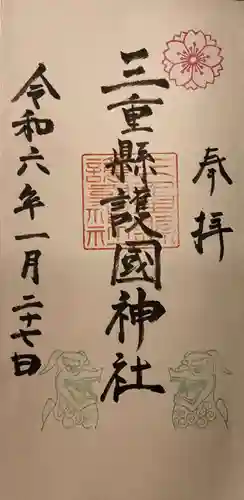 奉拝
三重縣護國神社
令和六年一月二十七日